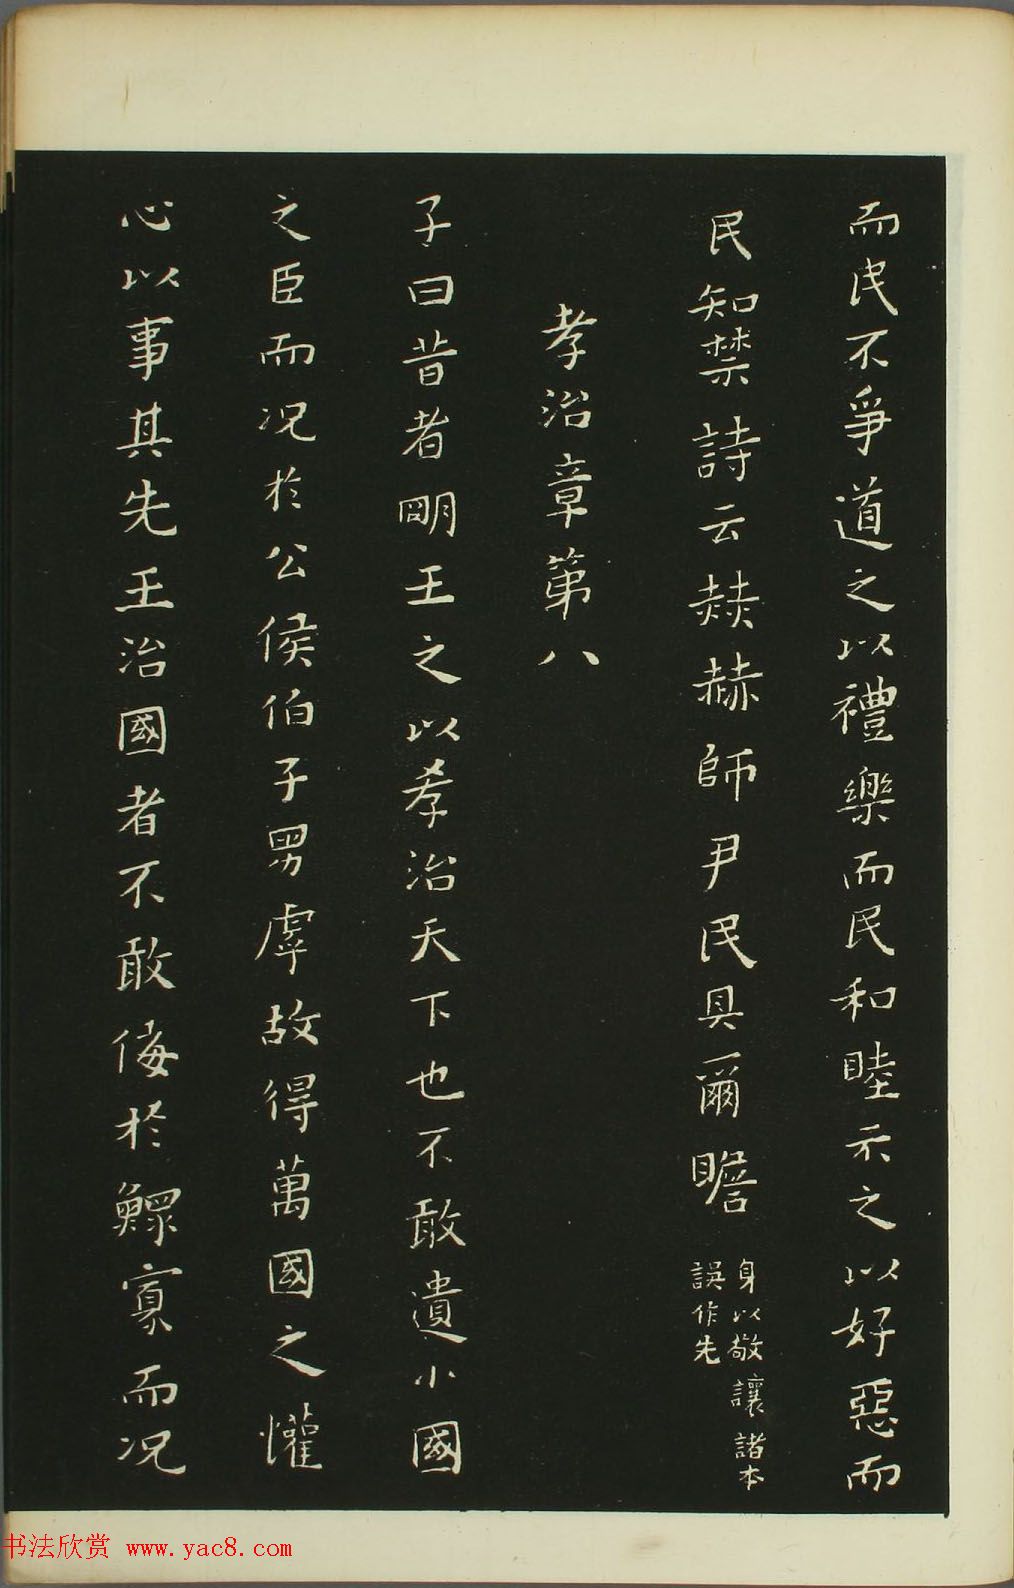 而民不爭道之以禮樂而民和睦示之以好惡而
民知禁詩云赫赫師尹民具爾瞻
身以敬讓諸本
誤作先
孝治章第八
子曰昔者明王之以孝治天下也不敢遺小國
之臣而况於公侯伯子男虖故得萬國之懽
心以事其先王治國者不敢侮於鰥寡而况
书法欣赏 www.yac8.com